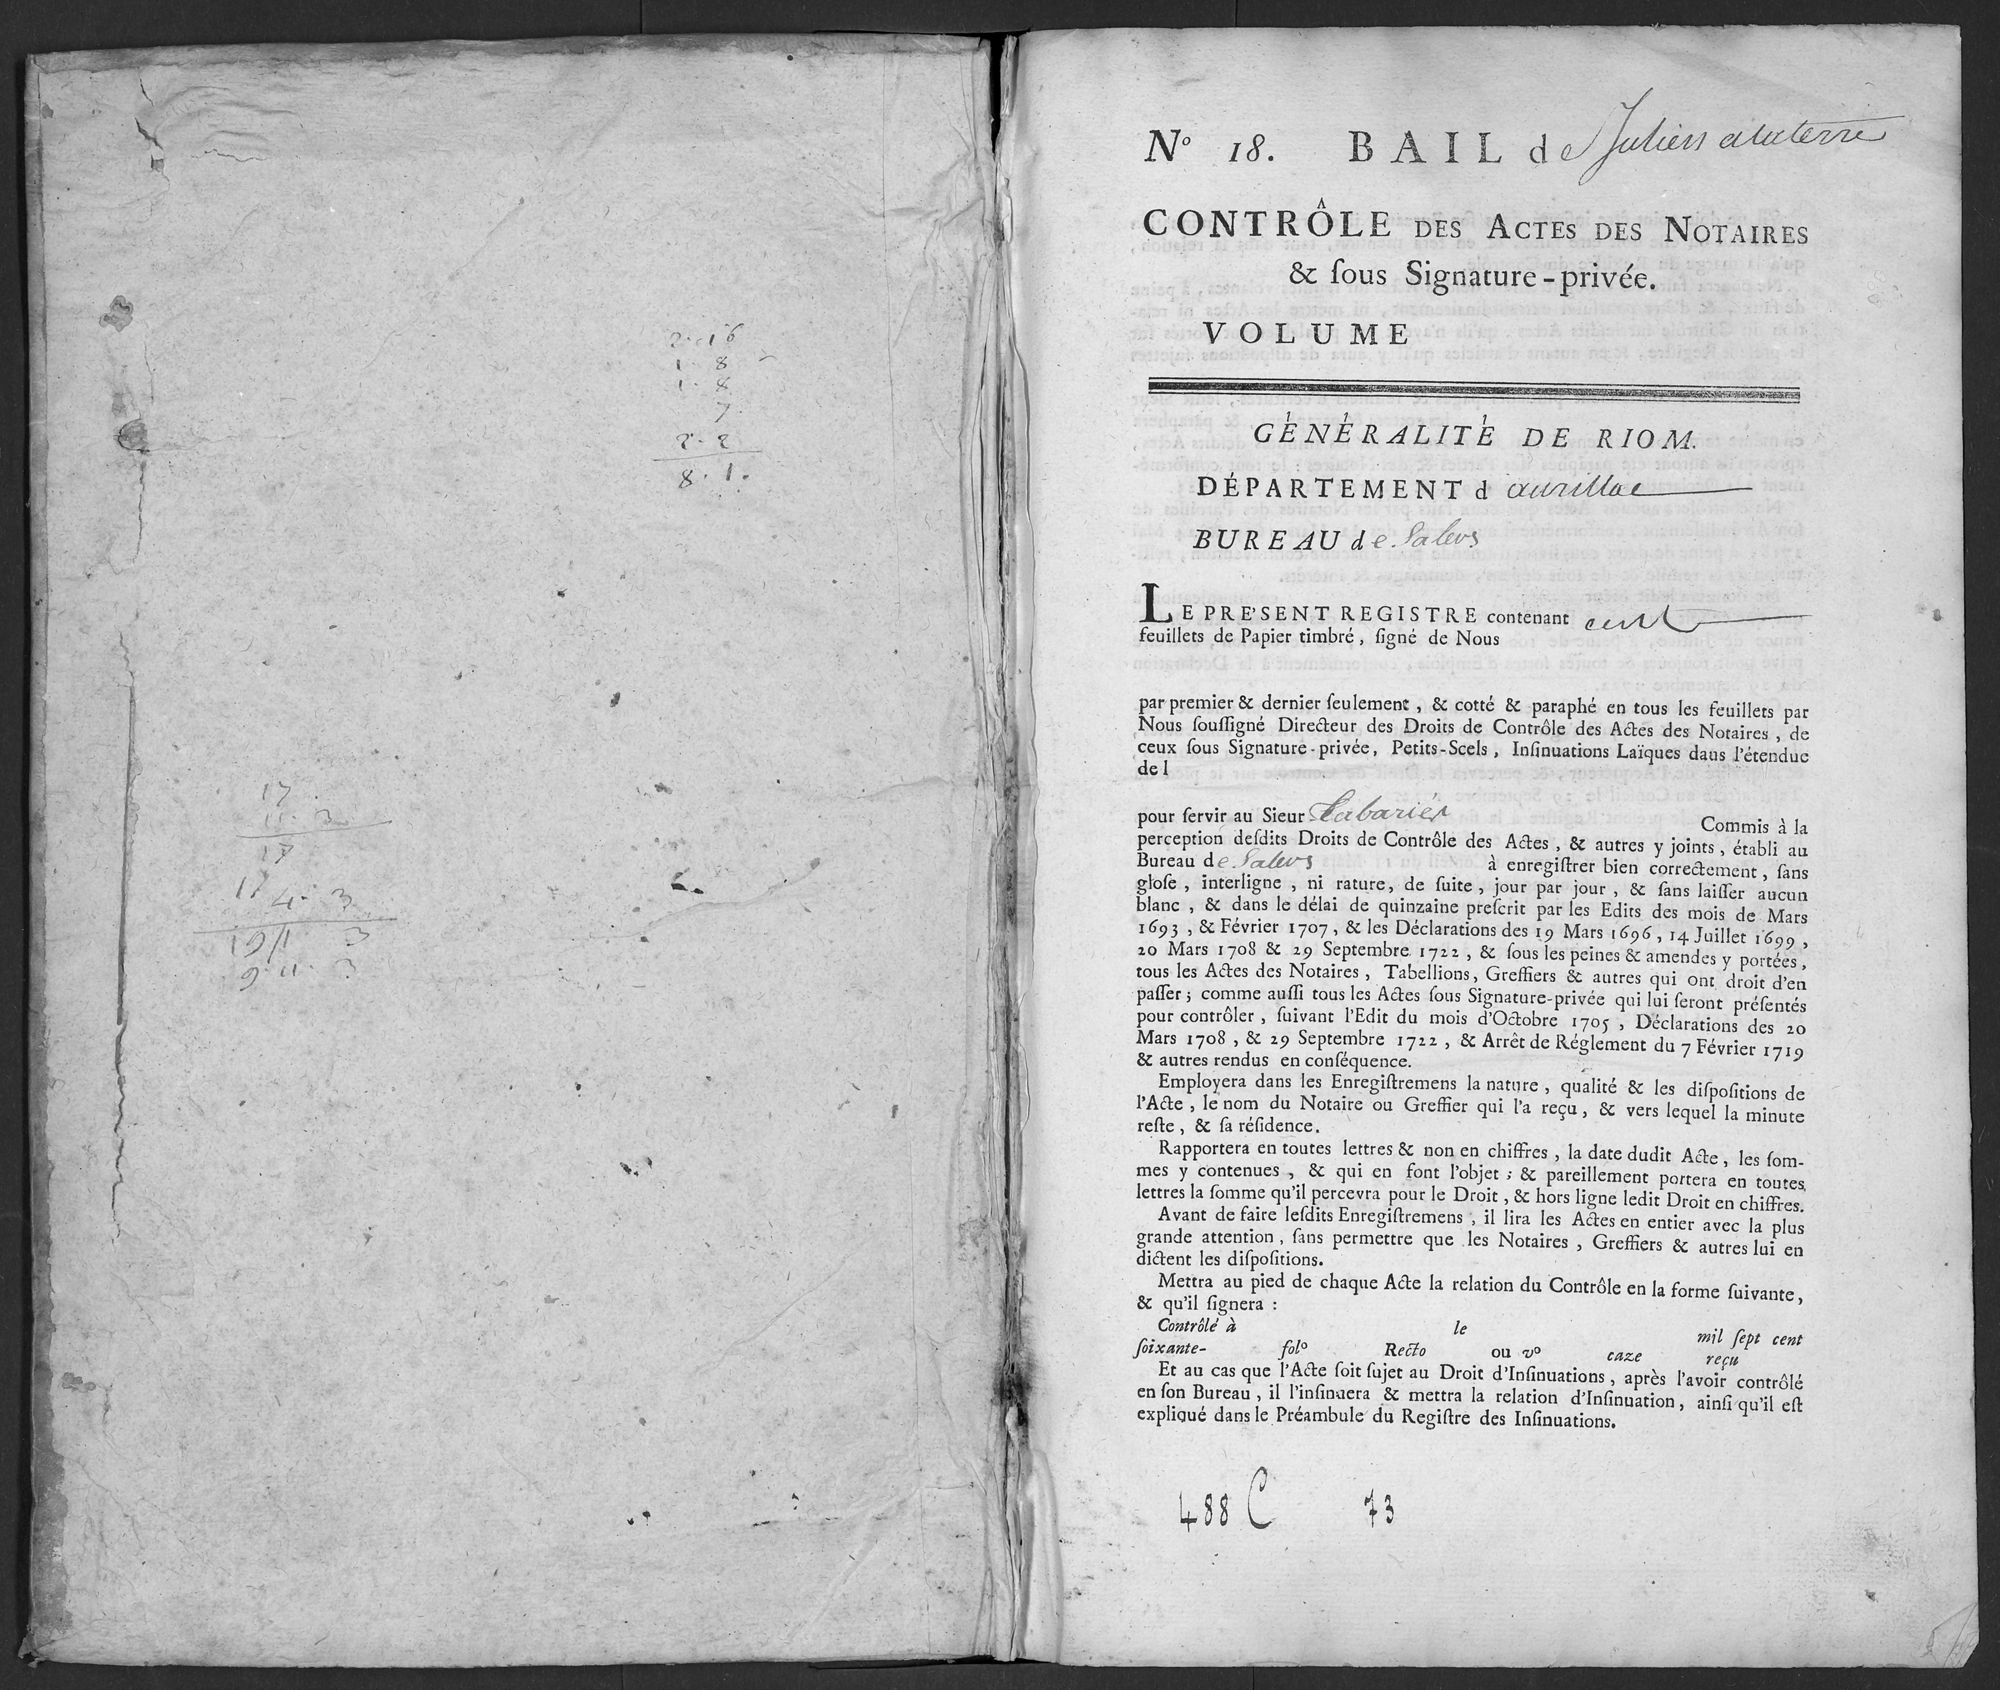 2. 16
1. 8
1. 8
7
2. 2
8. 1.
17
11. 3
17
17
4. 3
19 11 3
9. 11. 3
No 18. BAIL de Julien alaterre
CONTRÔLE DES ACTES DES NOTAIRES
& ſous Signature-privée.
VOLUME
GÉNÉRALITÉ DE RIOM.
DÉPARTEMENT d aurillac
BUREAU de Salers
LE PRE'SENT REGISTRE contenant cent
feuillets de Papier timbré, ſigné de Nous
par premier & dernier ſeulement, & cotté & paraphé en tous les feuillets par
Nous ſouſſigné Directeur des Droits de Contrôle des Actes des Notaires, de
ceux ſous Signature-privée, Petits-Scels, Inſinuations Laïques dans l'étendue
de l
pour ſervir au Sieur Cabariés Commis à la
perception deſdits Droits de Contrôle des Actes, & autres y joints, établi au
Bureau de Salers à enregiſtrer bien correctement, ſans
gloſe, interligne, ni rature, de ſuite, jour par jour, & ſans laiſſer aucun
blanc, & dans le délai de quinzaine preſcrit par les Edits des mois de Mars
1693, & Février 1707, & les Déclarations des 19 Mars 1696, 14 Juillet 1699,
20 Mars 1708 & 29 Septembre 1722, & ſous les peines & amendes y portées,
tous les Actes des Notaires, Tabellions, Greffiers & autres qui ont droit d'en
paſſer; comme auſſi tous les Actes ſous Signature-privée qui lui ſeront préſentés
pour contrôler, ſuivant l'Edit du mois d'Octobre 1705, Déclarations des 20
Mars 1708, & 29 Septembre 1722, & Arrêt de Réglement du 7 Février 1719
& autres rendus en conſéquence.
Employera dans les Enregiſtremens la nature, qualité & les diſpoſitions de
l'Acte, le nom du Notaire ou Greffier qui l'a reçu, & vers lequel la minute
reſte, & ſa réſidence.
Rapportera en toutes lettres & non en chiffres, la date dudit Acte, les ſom-
mes y contenues, & qui en font l'objet; & pareillement portera en toutes
lettres la ſomme qu'il percevra pour le Droit, & hors ligne ledit Droit en chiffres.
Avant de faire leſdits Enregiſtremens, il lira les Actes en entier avec la plus
grande attention, ſans permettre que les Notaires, Greffiers & autres lui en
dictent les diſpoſitions.
Mettra au pied de chaque Acte la relation du Contrôle en la forme ſuivante,
& qu'il ſignera :
Contrôlé à le mil ſept cent
ſoixante- folo Recto ou vo caze reçu
Et au cas que l'Acte ſoit ſujet au Droit d'Inſinuations, après l'avoir contrôlé
en ſon Bureau, il l'inſinuera & mettra la relation d'Inſinuation, ainſi qu'il eſt
expliqué dans le Préambule du Regiſtre des Inſinuations.
488 C 73